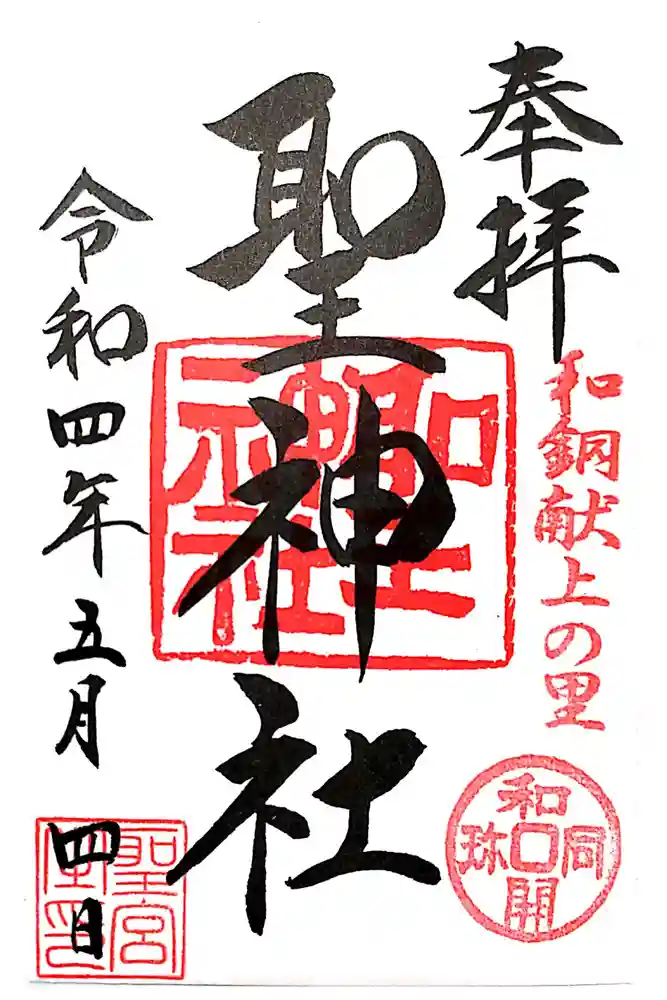 奉拝
和銅献上の里
和同開珎
聖神社
聖神社
令和四年五月四日